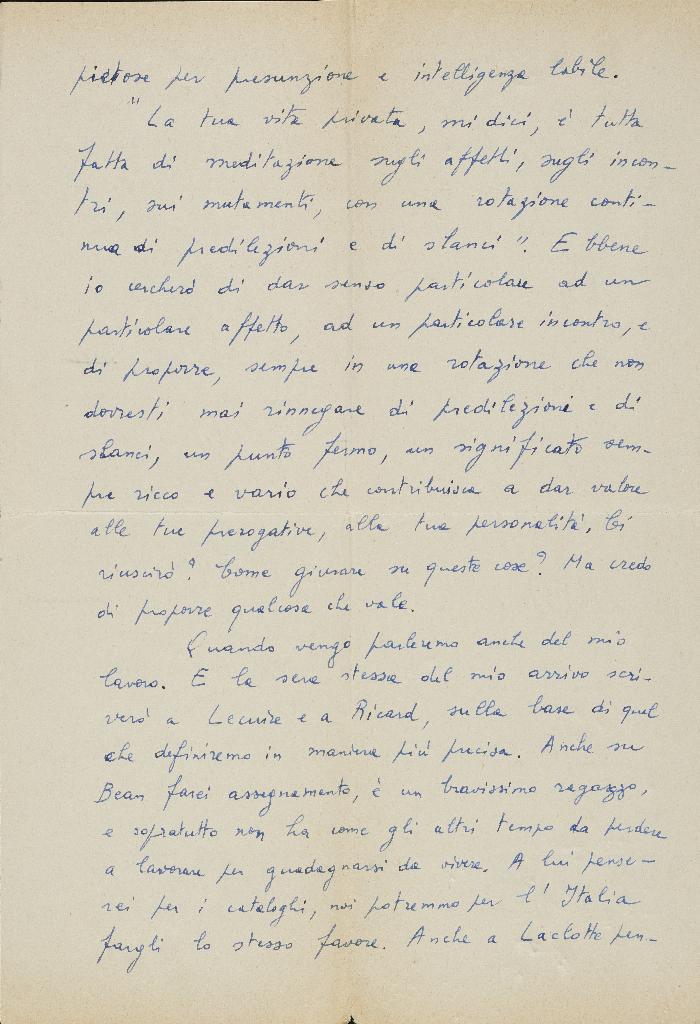 pietose per presunzione e intelligenza labile.
"La tua vita privata, mi dici, è tutta
fatta di meditazione sugli affetti, sugli incon-
tri, sui mutamenti, con una rotazione conti-
nua di predilezioni e di slanci". Ebbene
io cercherò di dar senso particolare ad un
particolare affetto, ad un particolare incontro, e
di proporre, sempre in una rotazione che non
dovresti mai rinnegare di predilezioni e di
slanci, un punto fermo, un significato sem-
pre ricco e vario che contribuisca a dar valore
alle tue prerogative, alla tua personalità. Ci
riuscirò? Come giurare su queste cose? Ma credo
di proporre qualcosa che vale.
Quando vengo parleremo anche del mio
lavoro. E la sera stessa del mio arrivo scri-
verò a Lecuire e a Ricard, sulla base di quel
che definiremo in maniera più precisa. Anche su
Bean farei assegnamento, è un bravissimo ragazzo,
e sopratutto non ha come gli altri tempo da perdere
a lavorare per guadagnarsi da vivere. A lui pense-
rei per i cataloghi, noi potremmo per l'Italia
fargli lo stesso favore. Anche a Laclotte pen-